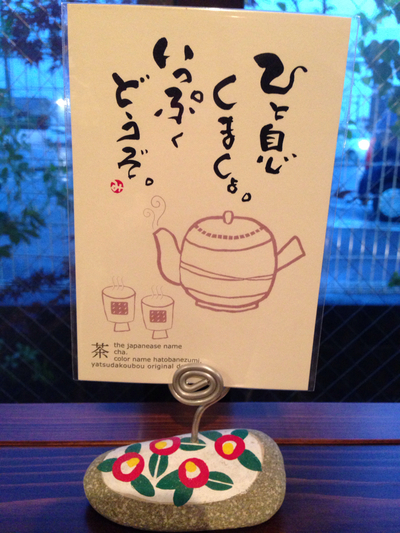 ひと息
しましょ。
いっぷく
どうぞ。
茶
the japanease name
cha,
color name hatobanezumi,
yatsudakoubou original d